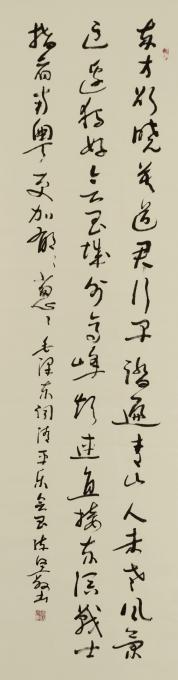 东方欲晓莫道君行早踏遍青山人未老风景
这边独好会昌城外高峰颠连直接东溟战士
指看南粤更加郁郁葱葱毛泽东词清平乐会昌